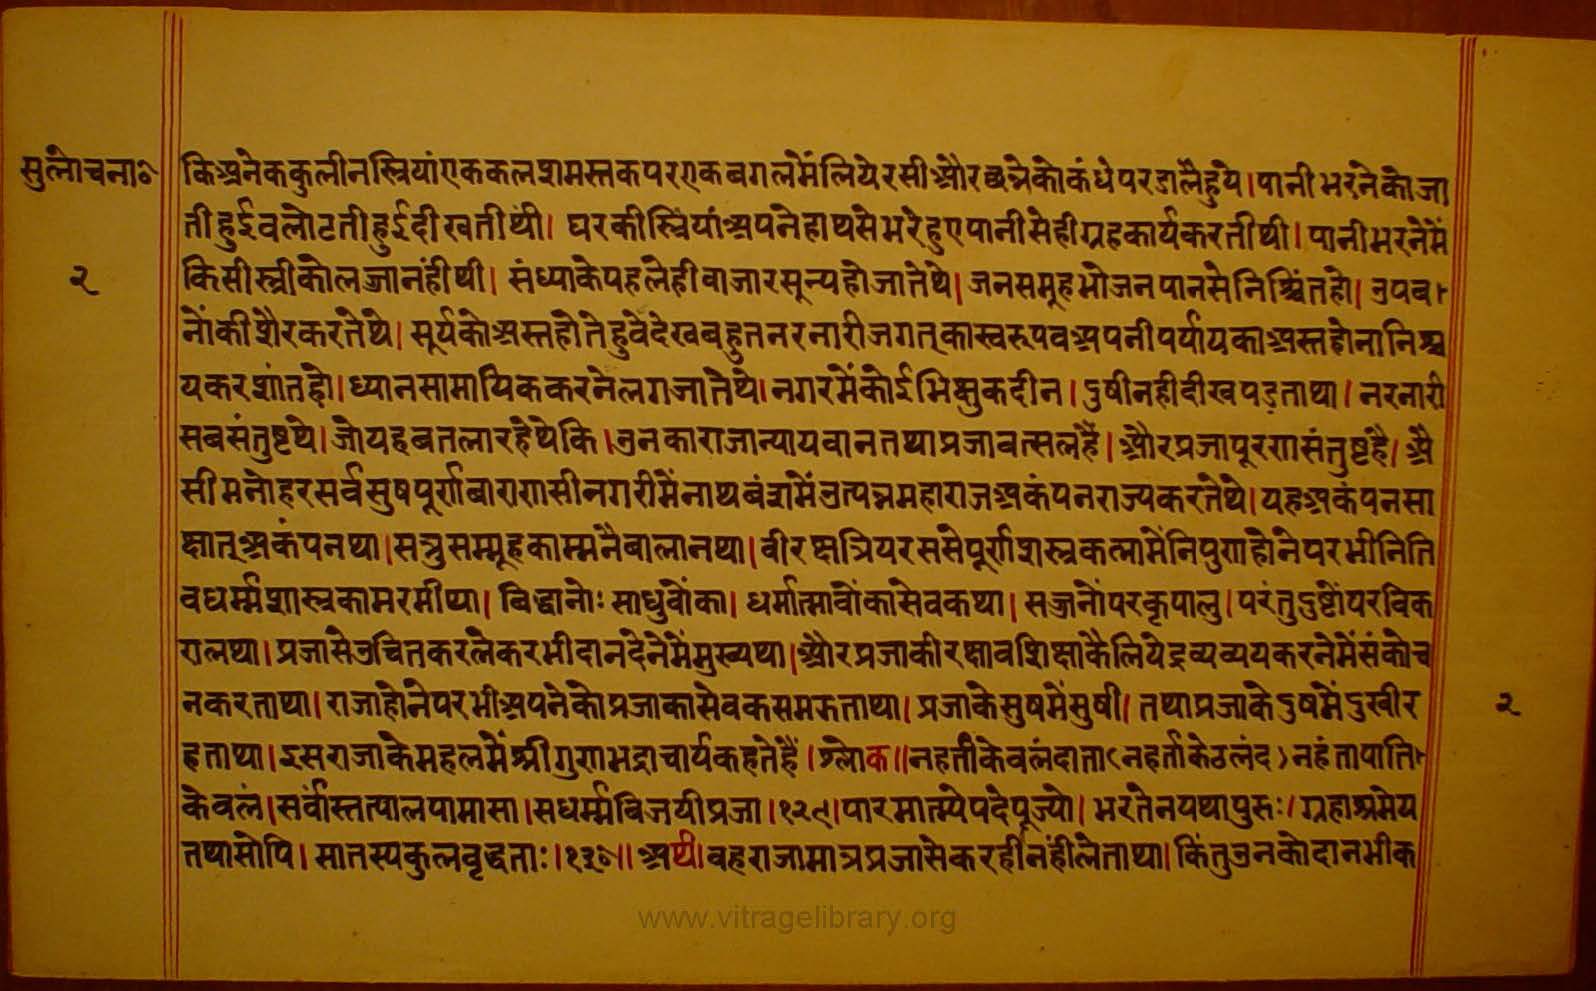 सुलोचना॰
२
किअनेककुलीनस्त्रियांएककलशमस्तकपरएकबगलमेंलियेरसीऔरछन्नेकोकंधेपरडालेहुये।पानीभरनेकोजा
तीहुईवलोटतीहुईदीखतीथीं। घरकीस्त्रियांअपनेहाथसेभरेहुएपानीसेहीग्रहकार्यकरतीथी। पानीभरनेमें
किसीस्त्रीकोलज्जानंहीथी। संध्याकेपहलेहीबाजारसून्यहोजातेथे। जनसमूहभोजनपानसेनिश्चिंतहो। उपब
नोंकीशैरकरतेथे। सूर्यकोअस्तहोतेहुवेदेखबहुतनरनारीजगत्कास्वरूपवअपनीपर्यायकाअस्तहोनानिश्च
यकरशांतहो।ध्यानसामायिककरनेलगजातेथे।नगरमेंकोईभिक्षुकदीन। दुषीनहीदीखपड़ताथा। नरनारी
सबसंतुष्टथे। जोयहबतलारहेथेकि। उनकाराजान्यायवानतथाप्रजावत्सलहैं। औरप्रजापूरणसंतुष्टहै। अै
सीमनोहरसर्वसुषपूर्णबाराणसीनगरीमेंनाथबंशमेंउत्पन्नमहाराजअकंपनराज्यकरतेथे। यहअकंपनसा
क्षात्अकंपनथा। सत्रुसम्मूहकाम्मनैबालानथा। वीरक्षत्रियरससेपूर्णशस्त्रकलामेंनिपुणहोनेपरभीनिति
वधर्म्मशास्त्रकामरमीथा। बिद्वानोः साधुवोंका। धर्मात्मावोंकासेवकथा। सज्जनोंपरकृपालु। परंतुदुष्टोंपरविक
रालथा। प्रजासेउचितकरलेकरभीदानदेनेमेंमुख्यथा। औरप्रजाकीरक्षावशिक्षाकैलियेद्रव्यव्ययकरनेमेंसंकोच
नकरताथा। राजाहोनेपरभीअपनेकोप्रजाकासेवकसमझताथा। प्रजाकेसुषमेंसुषी। तथाप्रजाकेदुषमेंदुखीर
हताथा। इसराजाकेमहलमेंश्रीगुणभद्राचार्यकहतेहैं। श्लोक॥नहर्तीकेवलंदाता(नहर्ताकेठलंद)नहंतापाति
केवलं। सर्वांस्तत्पालपामासा। सधर्म्मविजयीप्रजा।१२९।पारमात्म्येपदेपूज्यो। भरतेनयथापुरुः। ग्रहाश्रमेय
तथासोपि। सातस्यकुलवृद्धताः।१३०॥ अर्थ।वहराजामात्रप्रजासेकरहीनंहीलेताथा। किंतुउनकोदानभीक
२
www.vitragelibrary.org